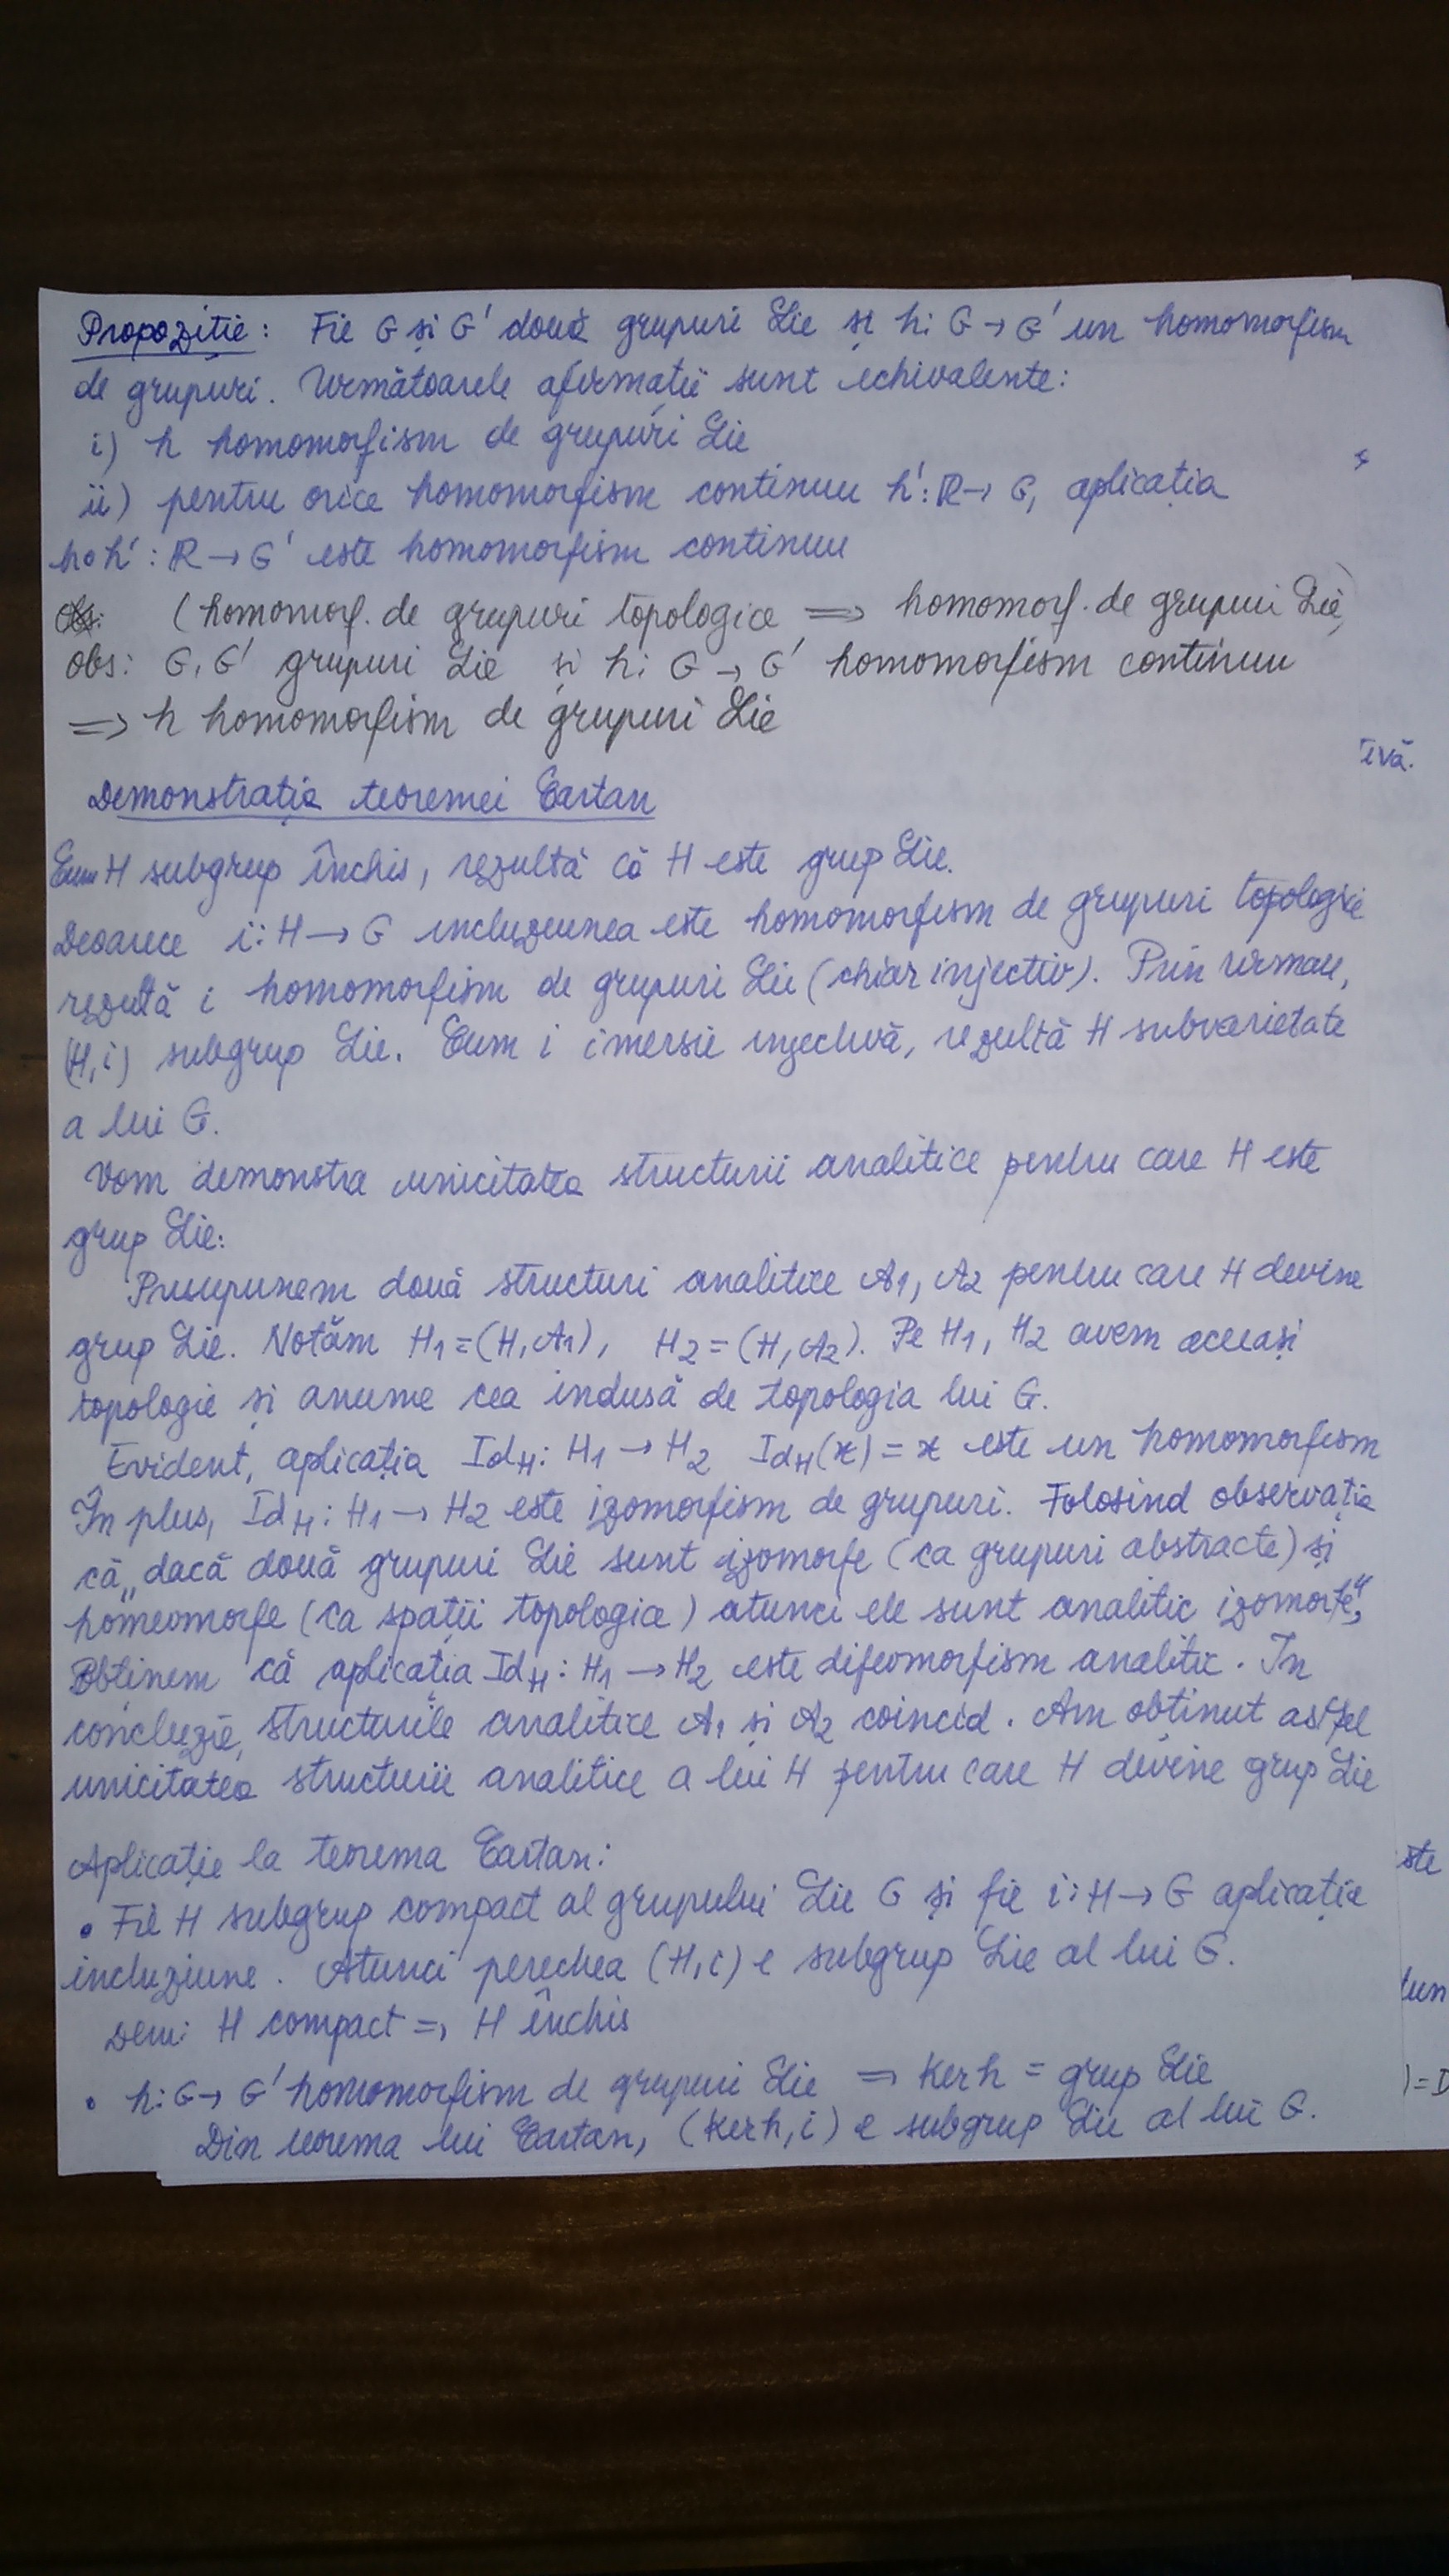 Propoziție: Fie G și G' două grupuri Lie și h: G → G' un homomorfism
de grupuri. Următoarele afirmații sunt echivalente:
i) h homomorfism de grupuri Lie
ii) pentru orice homomorfism continuu h': ℝ → G, aplicația
h∘h': ℝ → G' este homomorfism continuu
(homomorf. de grupuri topologice ⟹ homomorf. de grupuri Lie)
obs: G, G' grupuri Lie și h: G → G' homomorfism continuu
⟹ h homomorfism de grupuri Lie
ivă.
Demonstrația teoremei Cartan
Cum H subgrup închis, rezultă că H este grup Lie.
Deoarece i: H → G incluziunea este homomorfism de grupuri topologice
rezultă i homomorfism de grupuri Lie (chiar injectiv). Prin urmare,
(H, i) subgrup Lie. Cum i imersie injectivă, rezultă H subvarietate
a lui G.
Vom demonstra unicitatea structurii analitice pentru care H este
grup Lie:
Presupunem două structuri analitice A1, A2 pentru care H devine
grup Lie. Notăm H1 = (H, A1), H2 = (H, A2). Pe H1, H2 avem aceeași
topologie și anume cea indusă de topologia lui G.
Evident, aplicația IdH: H1 → H2 IdH(x) = x este un homomorfism
În plus, IdH: H1 → H2 este izomorfism de grupuri. Folosind observația
că „dacă două grupuri Lie sunt izomorfe (ca grupuri abstracte) și
homeomorfe (ca spații topologice) atunci ele sunt analitic izomorfe",
Obținem că aplicația IdH: H1 → H2 este difeomorfism analitic. În
concluzie, structurile analitice A1 și A2 coincid. Am obținut astfel
unicitatea structurii analitice a lui H pentru care H devine grup Lie
Aplicație la teorema Cartan:
ste
• Fie H subgrup compact al grupului Lie G și fie i: H → G aplicația
incluziune. Atunci perechea (H, i) e subgrup Lie al lui G.
Dem: H compact ⟹ H închis
• h: G → G' homomorfism de grupuri Lie ⟹ Ker h = grup Lie
Din teorema lui Cartan, (Ker h, i) e subgrup Lie al lui G.